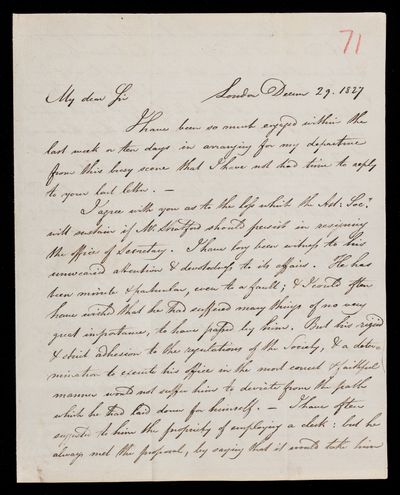 71
London Decem 29. 1827
My dear Sir
I have been so much engaged within the
last week or ten days in arranging for my departure
from this busy scene that I have not had time to reply
to your last letter. —
I agree with you as to the loss which the Ast. Soc.y
will sustain if Mr. Stratford should persist in resigning
the office of Secretary. I have long been witness to his
unwearied attention & devotedness to its affairs. He has
been minute & particular, even to a fault; & I could often
have wished that he had suffered many things of no very
great importance, to have passed by him. But his rigid
& strict adhesion to the regulations of the Society, & a deter-
mination to execute his office in the most correct & faithful
manner would not suffer him to deviate from the path
which he had laid down for himself. — I have often
to him the propriety of employing a clerk: but he
always met the proposal, by saying that it would take him